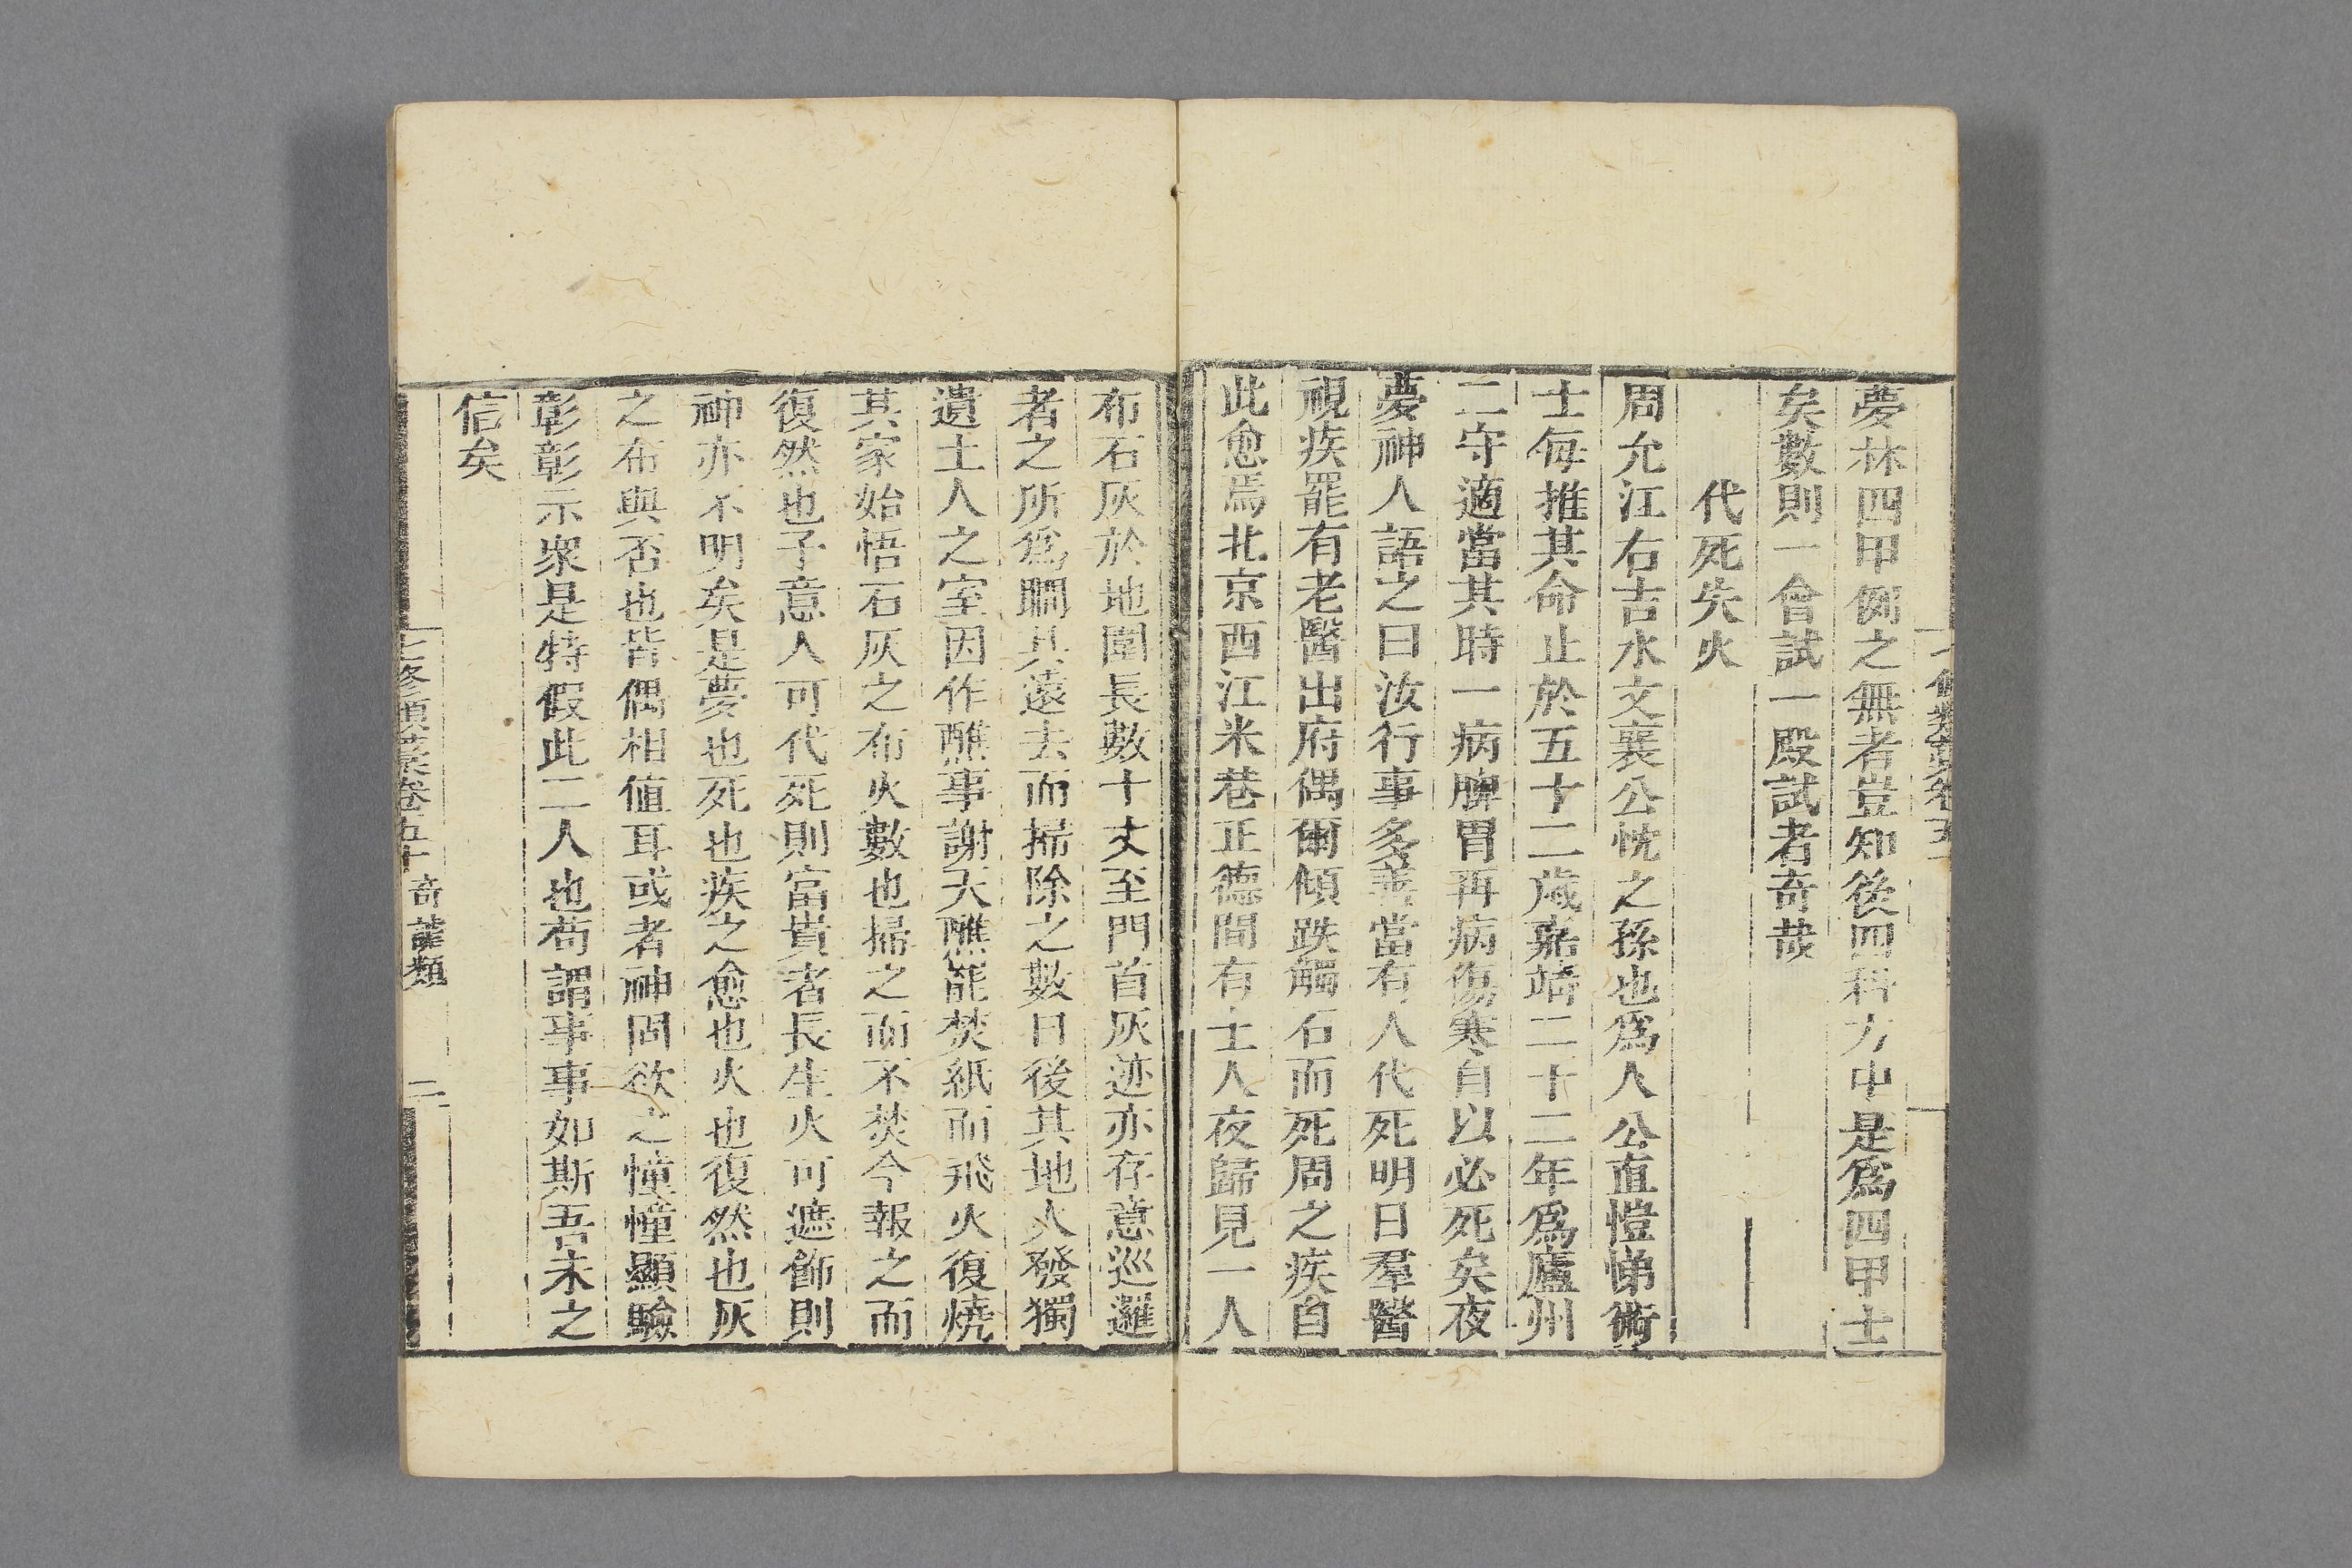 七修類藁卷五十
夢林四甲例之無者豈知後四科方中是爲四甲士
矣數則一會試一殿試者奇哉
代死失火
周允江右吉水文襄公忱之孫也爲人公直愷悌術
士每推其命止於五十二歲嘉靖二十二年爲廬州
二守適當其時一病脾胃再病傷寒自以必死矣夜
夢神人語之曰汝行事多善當有人代死明日羣醫
視疾罷有老醫出府偶爾傾跌觸石而死周之疾自
此愈焉北京西江米巷正德間有士人夜歸見一人
布石灰於地圍長數十丈至門首灰迹亦存意巡邏
者之所爲瞷其遠去而掃除之數日後其地火發獨
遺士人之室因作醮事謝天醮罷焚紙而飛火復燒
其家始悟石灰之布火數也掃之而不焚今報之而
復然也予意人可代死則富貴者長生火可遮飾則
神亦不明矣是夢也死也疾之愈也火也復然也灰
之布與否也皆偶相值耳或者神固欲之憧憧顯驗
彰彰示衆是特假此二人也苟謂事事如斯吾未之
信矣
七修類藁卷五十 奇謔類 二